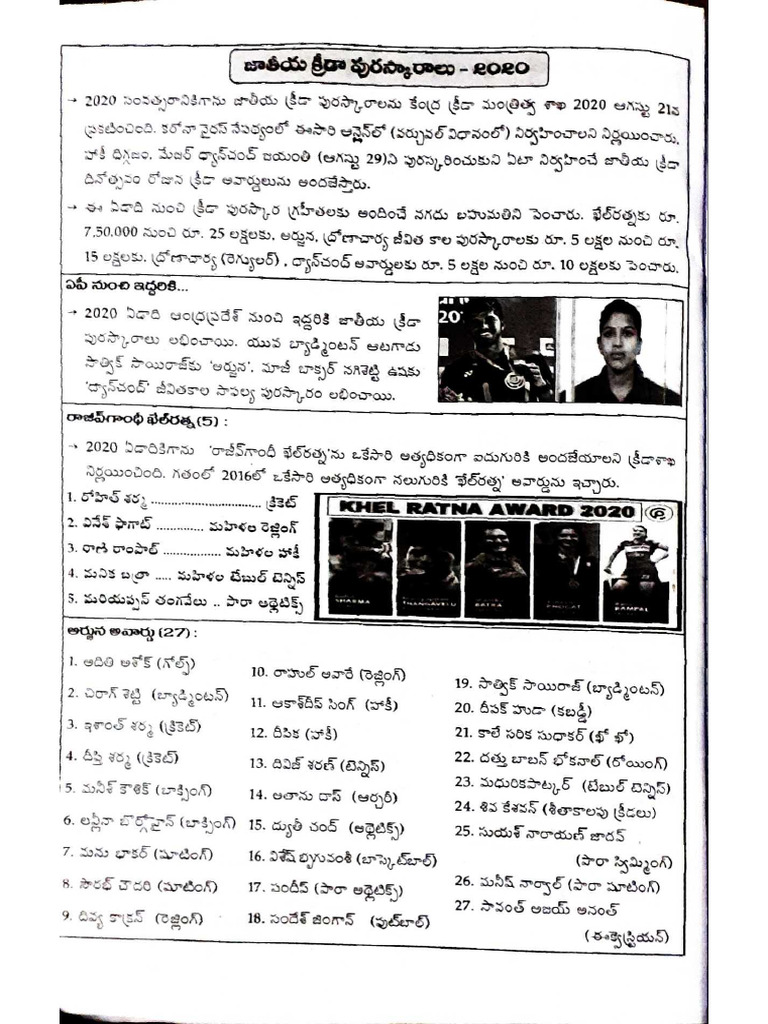 జాతీయ క్రీడా పురస్కారాలు - 2020
→ 2020 సంవత్సరానికిగాను జాతీయ క్రీడా పురస్కారాలను కేంద్ర క్రీడా మంత్రిత్వ శాఖ 2020 ఆగస్టు 21న
ప్రకటించింది. కరోనా వైరస్ నేపథ్యంలో ఈసారి ఆన్లైన్‌లో (వర్చువల్ విధానంలో) నిర్వహించాలని నిర్ణయించారు.
హాకీ దిగ్గజం. మేజర్ ధ్యాన్‌చంద్ జయంతి (ఆగస్టు 29)ని పురస్కరించుకుని ఏటా నిర్వహించే జాతీయ క్రీడా
దినోత్సవం రోజున క్రీడా అవార్డులును అందజేస్తారు.
→ ఈ ఏడాది నుంచి క్రీడా పురస్కార గ్రహీతలకు అందించే నగదు బహుమతిని పెంచారు. ఖేల్‌రత్నకు రూ.
7,50,000 నుంచి రూ. 25 లక్షలకు. అర్జున, ద్రోణాచార్య జీవిత కాల పురస్కారాలకు రూ. 5 లక్షల నుంచి రూ.
15 లక్షలకు. ద్రోణాచార్య (రెగ్యులర్) , ధ్యాన్‌చంద్ అవార్డులకు రూ. 5 లక్షల నుంచి రూ. 10 లక్షలకు పెంచారు.
ఏపీ నుంచి ఇద్దరికి...
→ 2020 ఏడాది ఆంధ్రప్రదేశ్ నుంచి ఇద్దరికి జాతీయ క్రీడా
పురస్కారాలు లభించాయి. యువ బ్యాడ్మింటన్ ఆటగాడు
సాత్విక్ సాయిరాజ్‌కు 'అర్జున', మాజీ బాక్సర్ నగిశెట్టి ఉషకు
'ద్యాన్‌చంద్' జీవితకాల సాఫల్య పురస్కారం లభించాయి.
రాజీవ్‌గాంధీ ఖేల్‌రత్న(5) :
→ 2020 ఏడారికిగాను 'రాజీవ్‌గాంధీ ఖేల్‌రత్న'ను ఒకేసారి అత్యధికంగా ఐదుగురికి అందజేయాలని క్రీడాశాఖ
నిర్ణయించింది. గతంలో 2016లో ఒకేసారి అత్యధికంగా నలుగురికి 'ఖేల్‌రత్న' అవార్డును ఇచ్చారు.
1. రోహిత్ శర్మ ............................ క్రికెట్
2. వినేశ్ ఫొగాట్ ............. మహిళల రెజ్లింగ్
3. రాణి రాంపాల్ ................ మహిళల హాకీ
4. మనిక బత్రా ..... మహిళల టేబుల్ టెన్నిస్
5. మరియప్పన్ తంగవేలు .. పారా అథ్లెటిక్స్
KHEL RATNA AWARD 2020
SHARMA
THANGAVELU
BATRA
PHOGAT
RAMPAL
అర్జున అవార్డు (27) :
1. అదితి అశోక్ (గోల్ఫ్)
2. చిరాగ్ శెట్టి (బ్యాడ్మింటన్)
3. ఇశాంత్ శర్మ (క్రికెట్)
4. దీప్తి శర్మ (క్రికెట్)
5. మనీశ్ కౌశిక్ (బాక్సింగ్)
6. లవ్లీనా బొర్గోహైన్ (బాక్సింగ్)
7. మను భాకర్ (షూటింగ్)
8. సౌరభ్ చౌదరి (షూటింగ్)
9. దివ్య కాక్రన్ (రెజ్లింగ్)
10. రాహుల్ ఆవారే (రెజ్లింగ్)
11. ఆకాశ్‌దీప్ సింగ్ (హాకీ)
12. దీపిక (హాకీ)
13. దివిజ్ శరణ్ (టెన్నిస్)
14. అతాను దాస్ (ఆర్చరీ)
15. ద్యుతీ చంద్ (అథ్లెటిక్స్)
16. విశేష్ భృగువంశీ (బాస్కెట్‌బాల్)
17. సందీప్ (పారా అథ్లెటిక్స్)
18. సందేశ్ జింగాన్ (ఫుట్‌బాల్)
19. సాత్విక్ సాయిరాజ్ (బ్యాడ్మింటన్)
20. దీపక్ హుడా (కబడ్డీ)
21. కాలే సరిక సుధాకర్ (ఖో ఖో)
22. దత్తు బాబన్ భోకనాల్ (రోయింగ్)
23. మధురికపాట్కర్ (టేబుల్ టెన్నిస్)
24. శివ కేశవన్ (శీతాకాలపు క్రీడలు)
25. సుయశ్ నారాయణ్ జాదవ్
(పారా స్విమ్మింగ్)
26. మనీష్ నార్వాల్ (పారా షూటింగ్)
27. సావంత్ అజయ్ అనంత్
(ఈక్వెస్ట్రియన్)